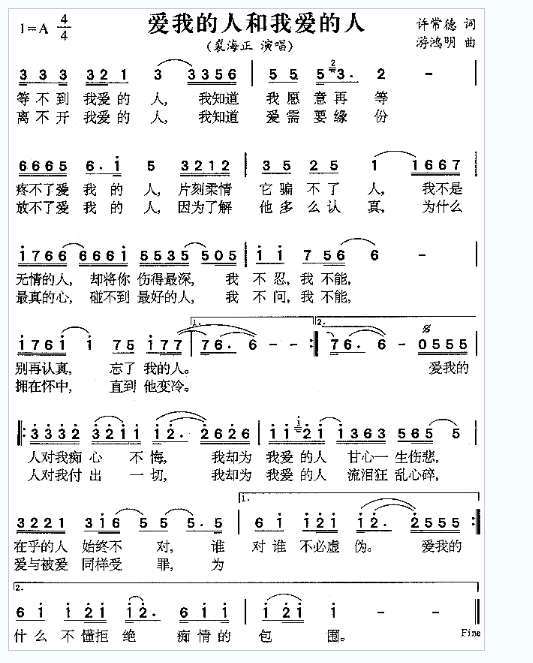 爱我的人和我爱的人
1=A 4/4
(裘海正 演唱)
许常德 词
游鸿明 曲
3 3 3 3 2 1 3 3 3 5 6 5 5 2 5 3. 2 -
等不到 我爱的 人, 我知道 我愿意再等
离不开 我爱的 人, 我知道 爱需要缘份
6 6 6 5 6. i 5 3 2 1 2 3 5 2 5 1 1 6 6 7
疼不了爱 我的人, 片刻柔情 它骗不了人, 我不是
放不了爱 我的人, 因为了解 他多么认真, 为什么
i 7 6 6 6 6 6 i 5 5 3 5 5 0 5 i i 7 5 6 6 -
无情的人, 却将你 伤得最深, 我不忍, 我不能,
最真的心, 碰不到 最好的人, 我不问, 我不能,
i 7 6 i i 7 5 i 7 7 1. 7 6. 6 - - :‖ 2. 7 6. 6 - 0 5 5 5
别再认真, 忘了 我的人。 爱我的
拥在怀中, 直到 他变冷。
‖: 3 3 3 2 3 2 i i i 2. 2 6 2 6 i i i 2 i i 3 6 3 5 6 5 5
人对我痴心 不悔, 我却为 我爱的人 甘心一生伤悲,
人对我付出 一切, 我却为 我爱的人 流泪狂乱心碎,
3 2 2 1 3 i 6 5 5 5. 5 1. 6 i i 2 i i 2. 2 5 5 5 :‖
在乎的人 始终不 对, 谁 对谁 不必虚伪。 爱我的
爱与被爱 同样受 罪, 为
2. 6 i i 2 i i 2. 6 i i i - -
什么不懂拒绝 痴情的包围。
Fine